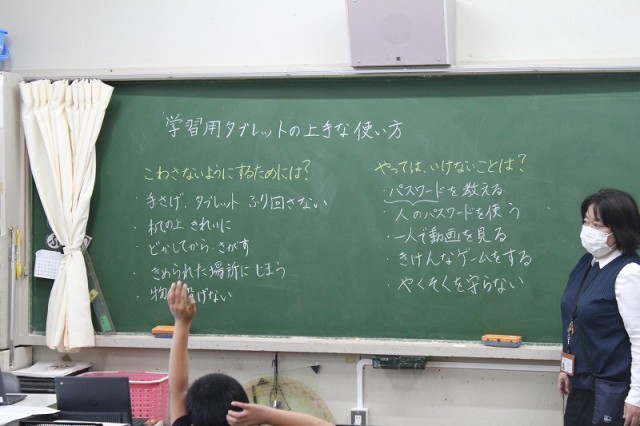 学習用タブレットの上手な使い方
こわさないようにするためには?
・手さげ、タブレット ふり回さない
・机の上 きれいに
・どかしてから、さがす
・きめられた場所に しまう
・物 投げない
やっては、いけないことは?
・パスワードを教える
・人のパスワードを使う
・一人で動画を見る
・きけんなゲームをする
・やくそくを守らない